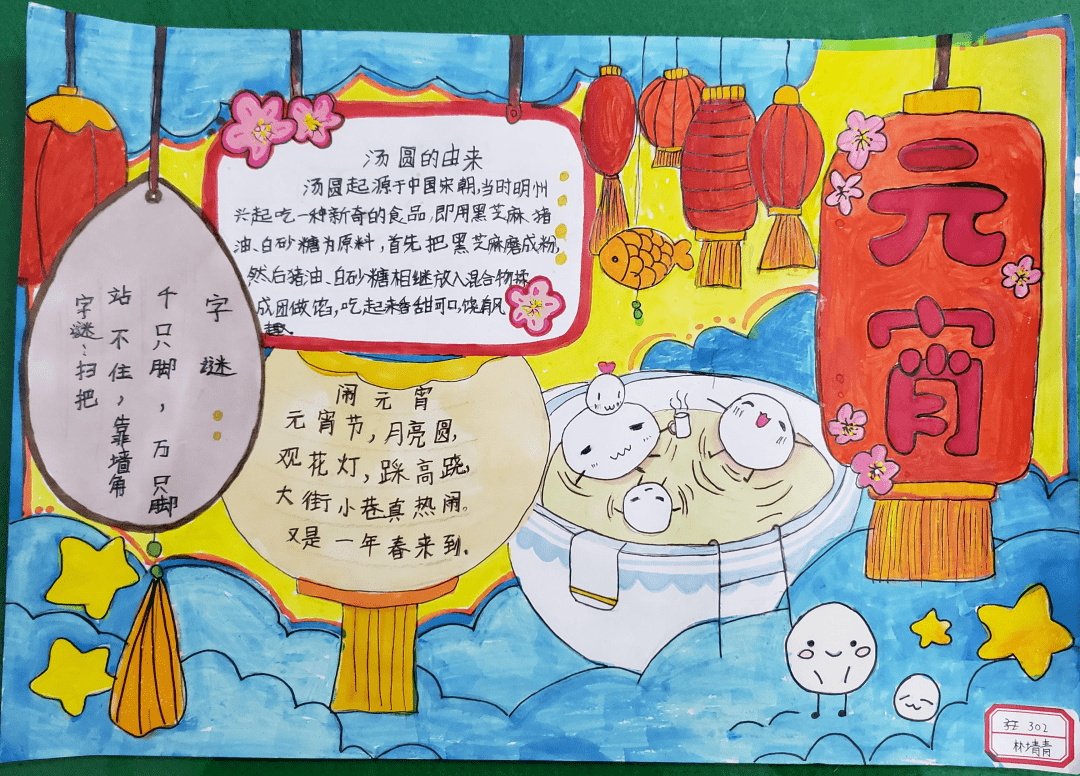 汤圆的由来
汤圆起源于中国宋朝,当时明州
兴起吃一种新奇的食品,即用黑芝麻、猪
油、白砂糖为原料,首先把黑芝麻磨成粉,
然白猪油、白砂糖相继放入混合物揉
成团做馅,吃起来香甜可口,饶有风
趣。
元宵
字谜:
千只脚,万只脚
站不住,靠墙角
字谜:扫把
闹元宵
元宵节,月亮圆,
观花灯,踩高跷,
大街小巷真热闹。
又是一年春来到。
302